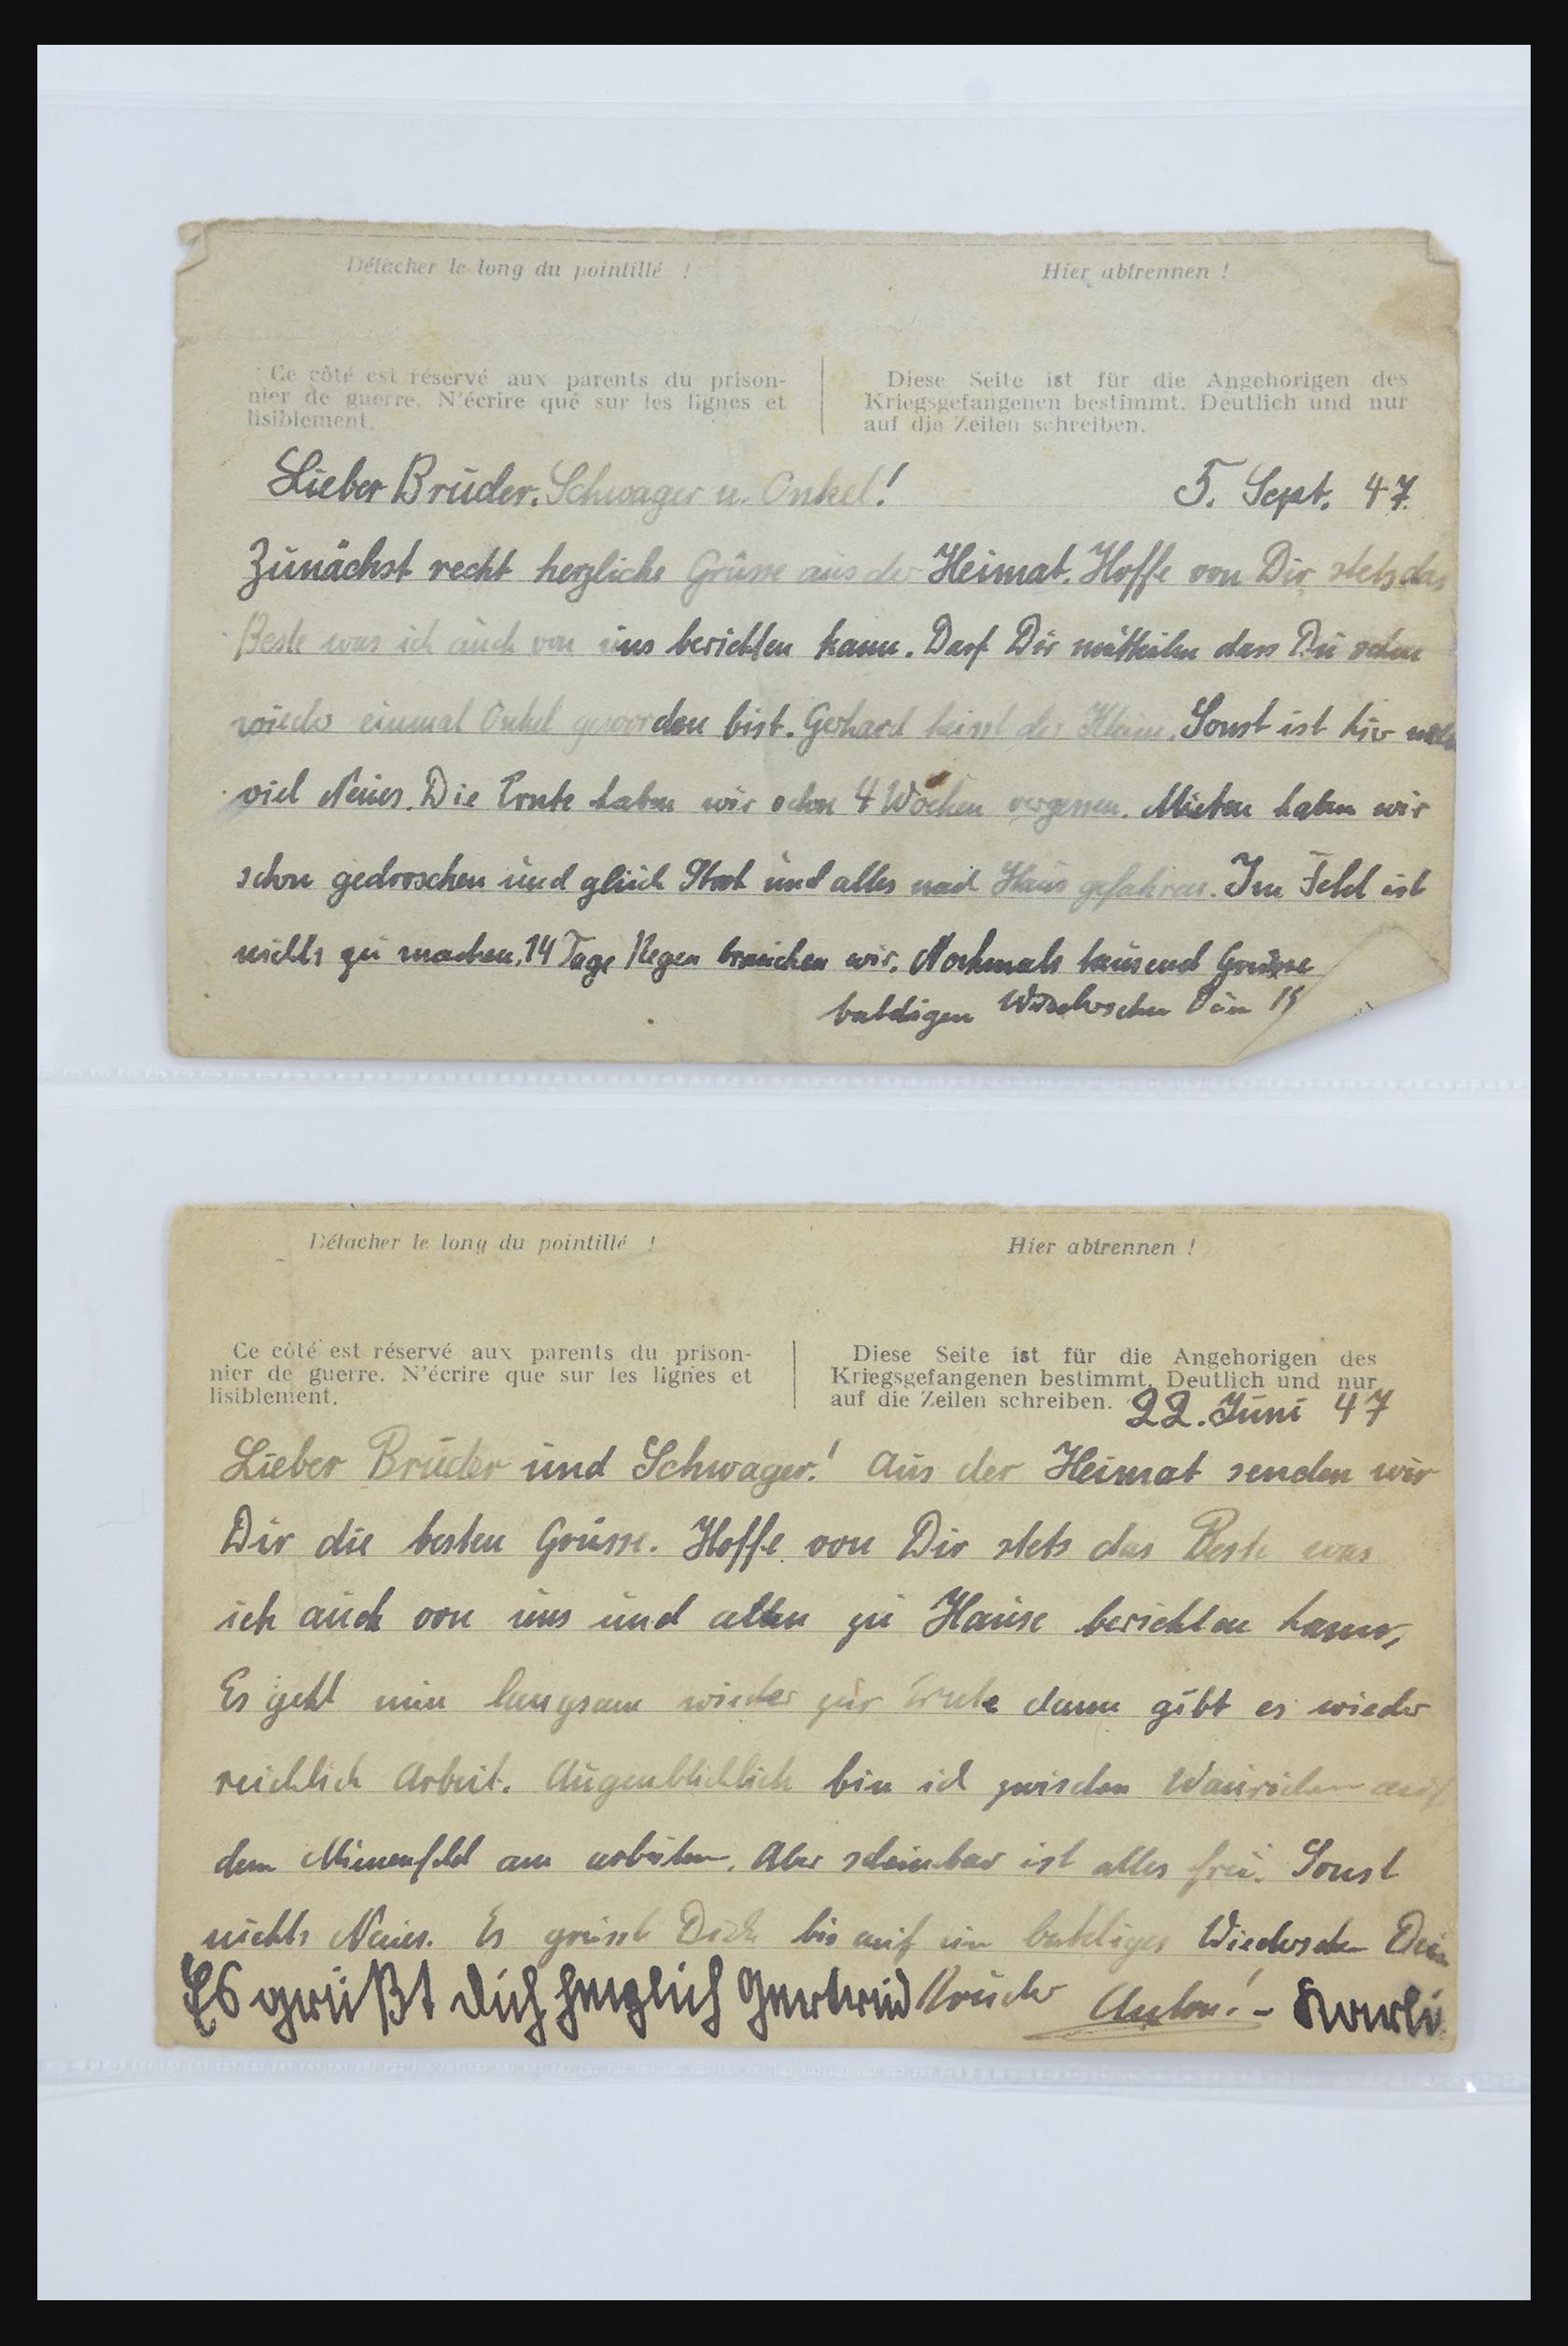 Détacher le long du pointillé !
Hier abtrennen !
Ce côté est réservé aux parents du prison-
nier de guerre. N'écrire que sur les lignes et
lisiblement.
Diese Seite ist für die Angehorigen des
Kriegsgefangenen bestimmt. Deutlich und nur
auf die Zeilen schreiben.
Lieber Bruder. Schwager u. Onkel! 5. Sept. 47.
Zunächst recht herzliche Grüsse aus der Heimat. Hoffe von Dir stets das
Beste was ich auch von uns berichten kann. Darf Dir mitteilen dass Du schon
wieder einmal Onkel geworden bist. Gerhard heisst der Kleine. Sonst ist hier
viel Neues. Die Ernte haben wir schon 4 Wochen vergessen. Mieten haben wir
schon gedroschen und gleich Stroh und alles nach Haus gefahren. Im Feld ist
nichts zu machen. 14 Tage Regen brauchen wir. Nochmals tausend Grüsse
baldigen Wiedersehn Dein
Détacher le long du pointillé !
Hier abtrennen !
Ce côté est réservé aux parents du prison-
nier de guerre. N'écrire que sur les lignes et
lisiblement.
Diese Seite ist für die Angehorigen des
Kriegsgefangenen bestimmt. Deutlich und nur
auf die Zeilen schreiben.
22. Juni 47
Lieber Bruder und Schwager! Aus der Heimat senden wir
Dir die besten Grüsse. Hoffe von Dir stets das Beste was
ich auch von uns und allen zu Hause berichten kann.
Es geht nun langsam wieder zur Ernte dann gibt es wieder
reichlich Arbeit. Augenblicklich bin ich zwischen auf
dem Minenfeld am arbeiten. Aber scheinbar ist alles frei. Sonst
nichts Neues. Es grüsst Dich bis auf ein baldiges Wiedersehen Dein
Bruder Anton! -
Es grüßt dich herzlich Gertrud Karli